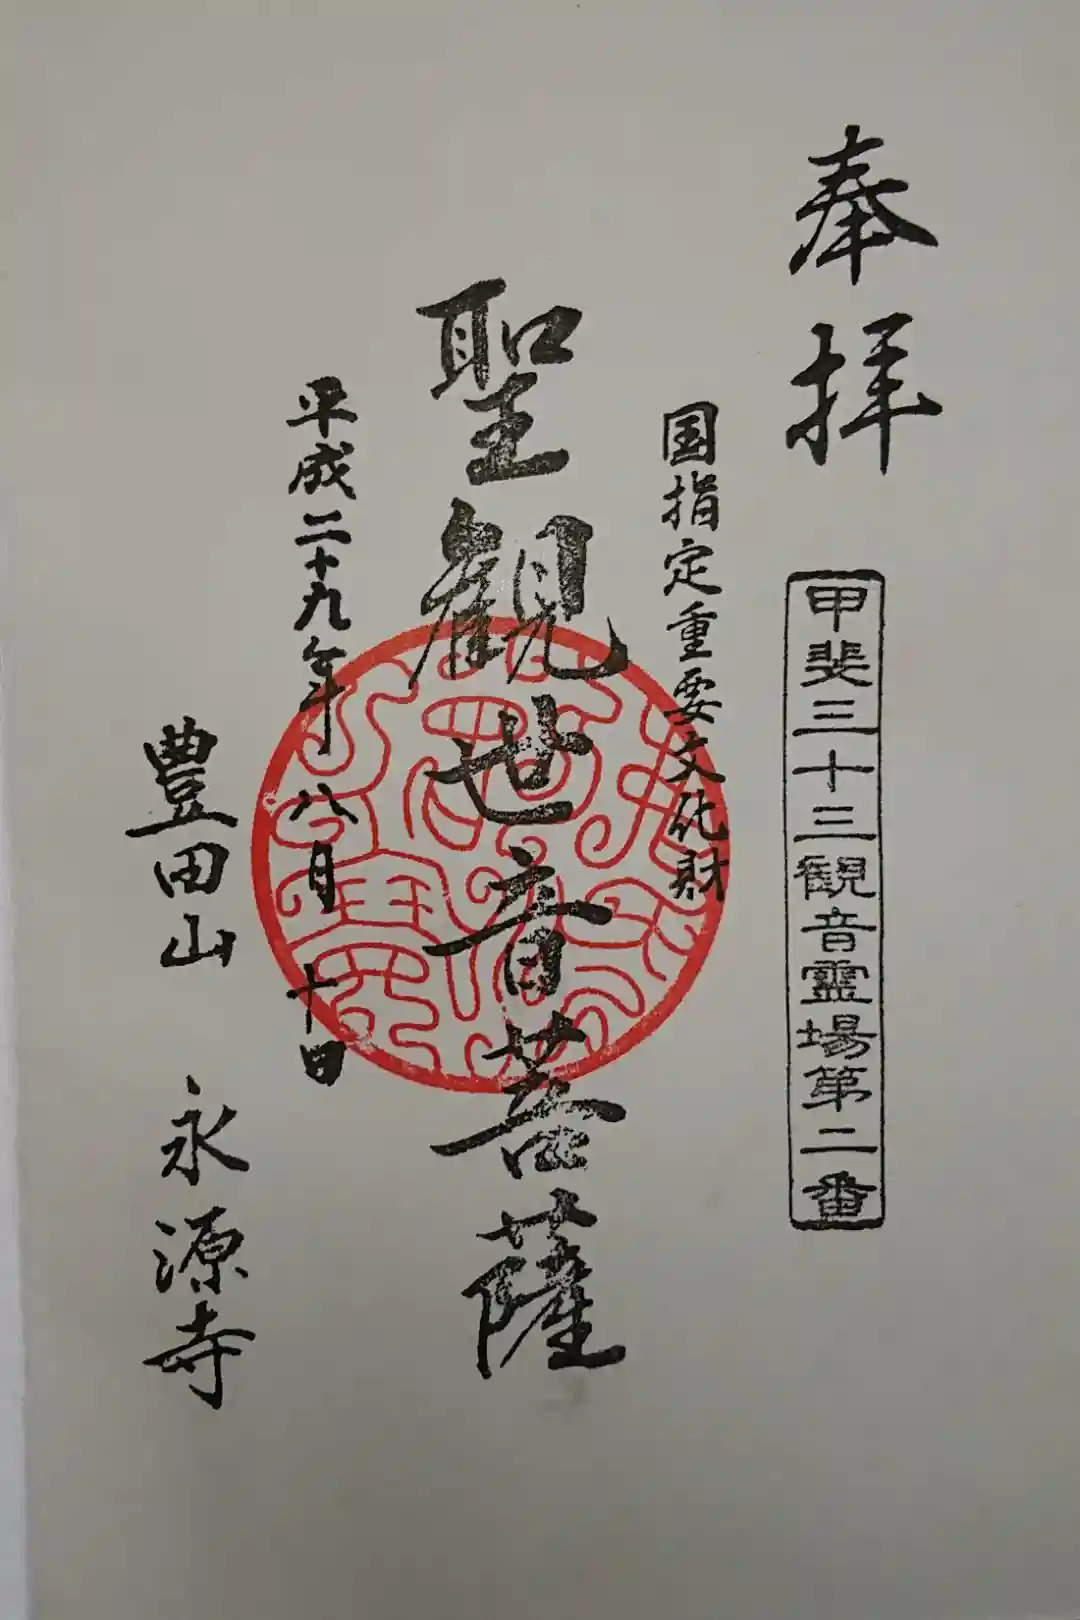 奉拝
甲斐三十三観音霊場第二番
国指定重要文化財
聖観世音菩薩
平成二十九年八月十日
豊田山 永源寺